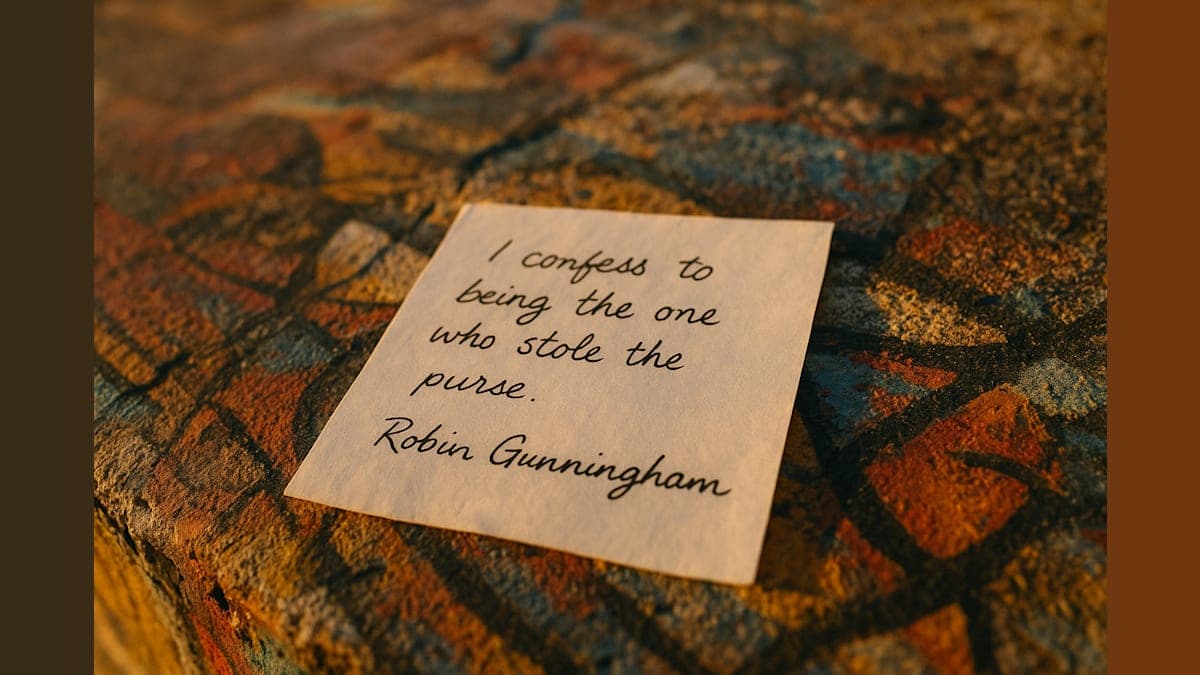 I confess to
being the one
who stole the
purse.
Robin Gunningham